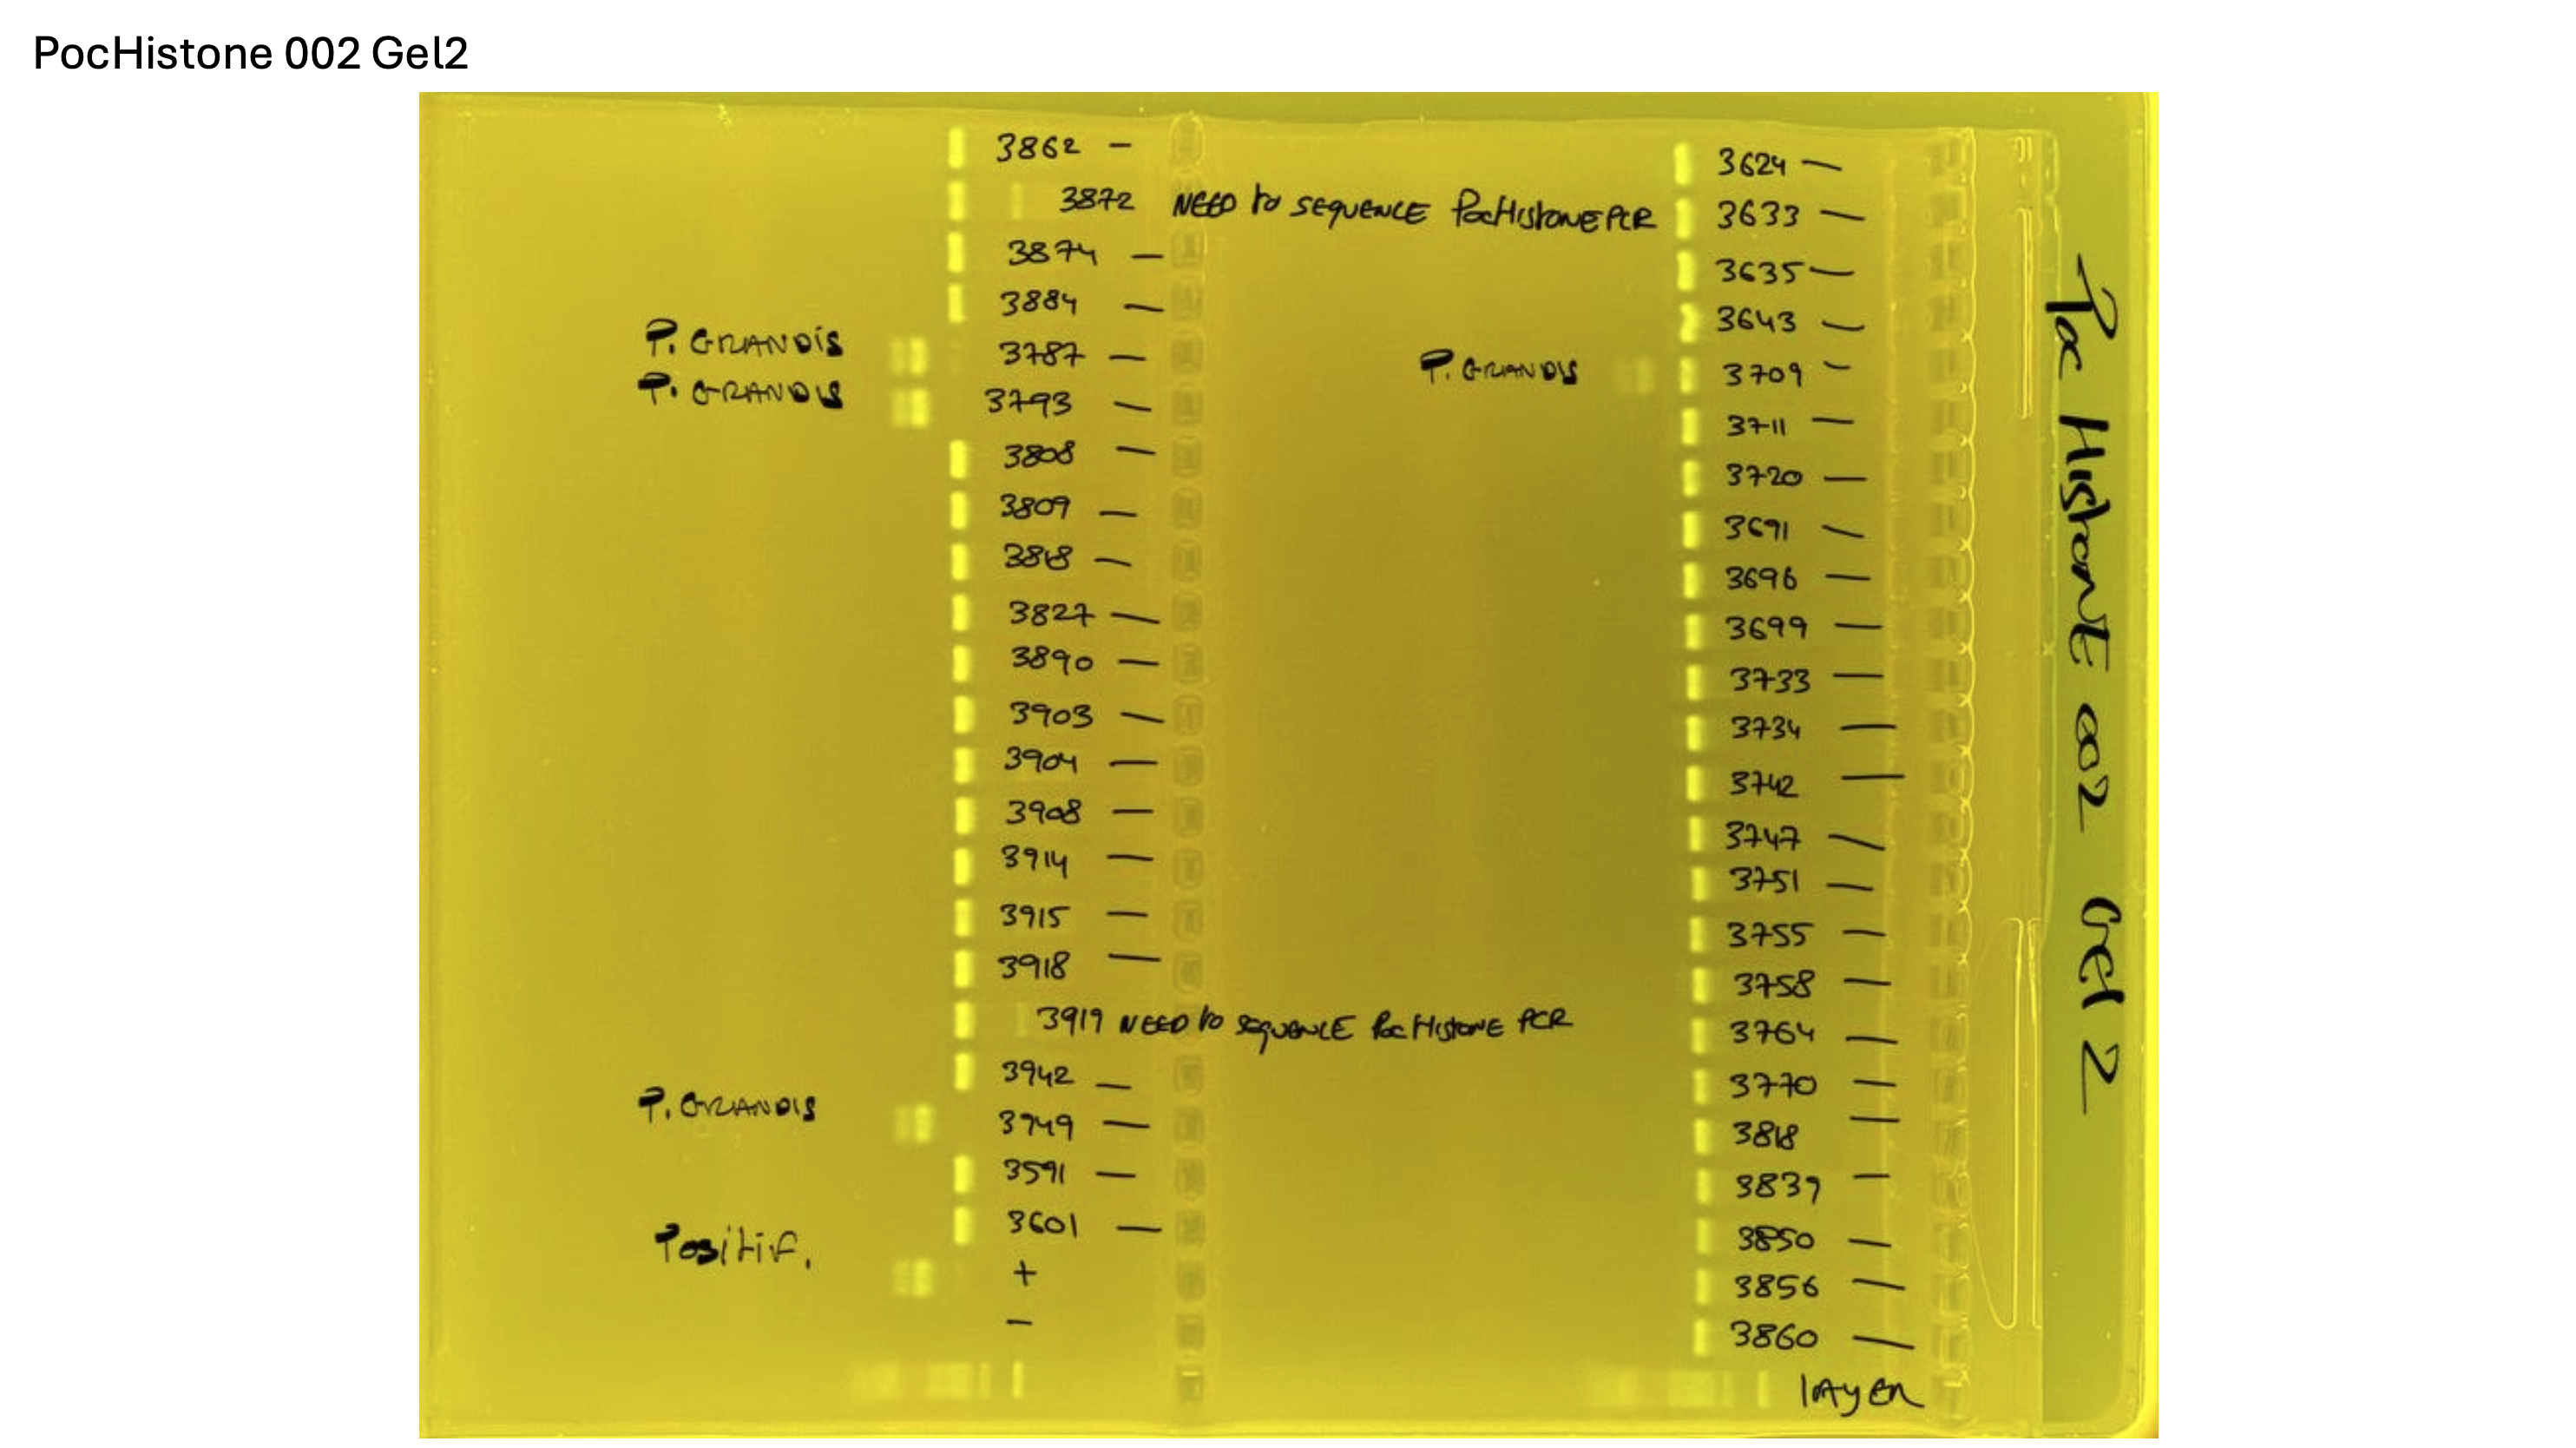 PocHistone 002 Gel2
3862 -
3872 NEED to SEQUENCE PocHistonePCR
3874 -
3884 -
P. GRANDIS 3787 -
P. GRANDIS 3793 -
3808 -
3809 -
3818 -
3827 -
3890 -
3903 -
3904 -
3908 -
3914 -
3915 -
3918 -
3919 NEED to SEQUENCE PocHistone PCR
3942 -
P. GRANDIS 3949 -
3591 -
3601 -
Positif. +
-
3624 -
3633 -
3635 -
3643 -
P. GRANDIS 3709 -
3711 -
3720 -
3691 -
3696 -
3699 -
3733 -
3734 -
3742 -
3747 -
3751 -
3755 -
3758 -
3764 -
3770 -
3818 -
3839 -
3850 -
3856 -
3860 -
layer
Poc Histone 002 Gel 2